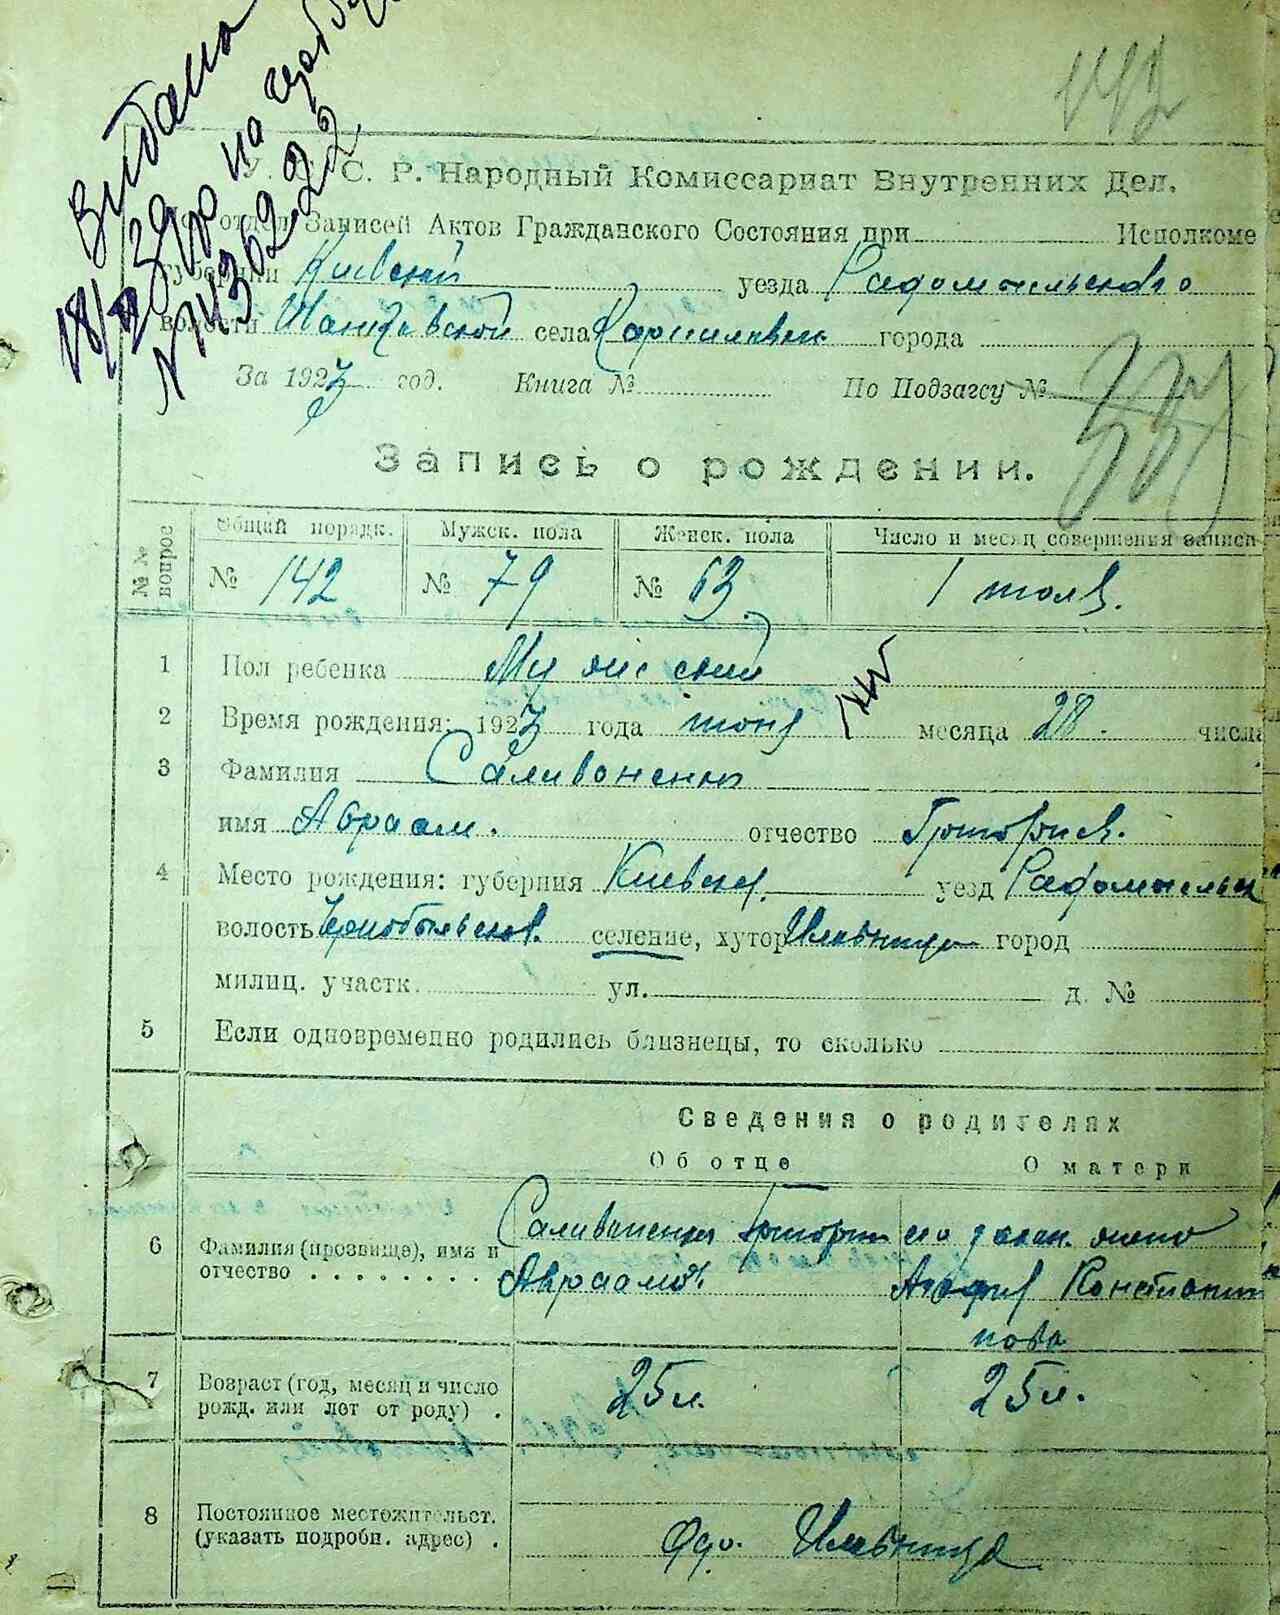 Видана
18/
№ 74362922
142
С. Р. Народный Комиссариат Внутренних Дел.
отдел Записей Актов Гражданского Состояния при Исполкоме
губернии Киевской уезда Радомысльского
волости села города
За 1923 год. Книга № По Подзагсу №
Запись о рождении.
№№ вопрос Общий порядк. Мужск. пола Женск. пола Число и месяц совершения записи
№ 142 № 79 № 63 1 июля.
1 Пол ребенка Мужский
2 Время рождения: 1923 года июня месяца 28. числа
3 Фамилия Саливоненко
имя Авраам. отчество Григориев.
4 Место рождения: губерния Киевск. уезд Радомысльск
волость Чернобыльской. селение, хутор Ильвница город
милиц. участк. ул. д. №
5 Если одновременно родились близнецы, то сколько
Сведения о родителях
Об отце О матери
6 Фамилия (прозвище), имя и Саливоненко Григорий его закон. жена
отчество Авраамов. Агафия Константи
нова
7 Возраст (год, месяц и число 25 л. 25 л.
рожд. или лет от роду) .
8 Постоянное местожительст.
(указать подробн. адрес) . Ильвница